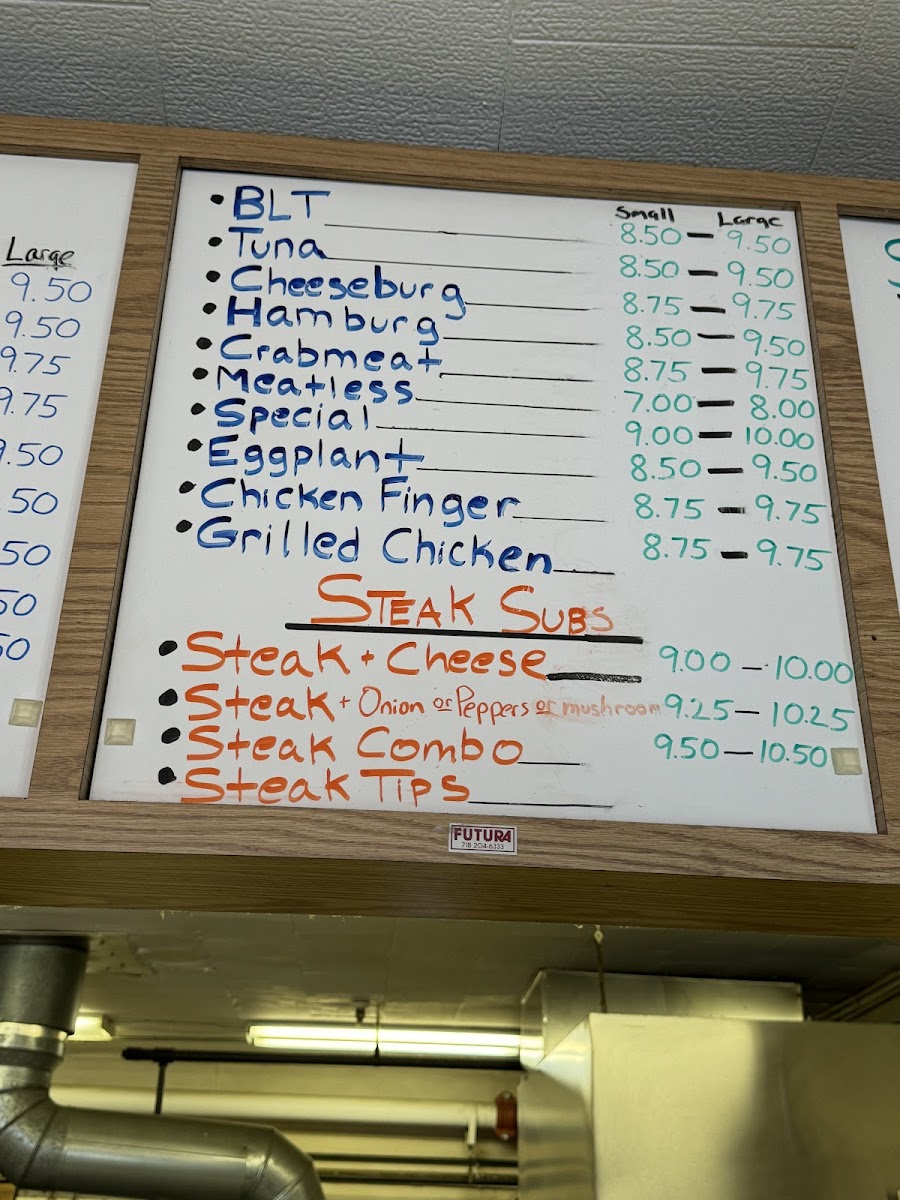 Large
9.50
9.50
9.75
9.75
9.50
.50
50
50
50
Small Large
• BLT 8.50 — 9.50
• Tuna 8.50 — 9.50
• Cheeseburg 8.75 — 9.75
• Hamburg 8.50 — 9.50
• Crabmeat 8.75 — 9.75
• Meatless 7.00 — 8.00
• Special 9.00 — 10.00
• Eggplant 8.50 — 9.50
• Chicken Finger 8.75 — 9.75
• Grilled Chicken 8.75 — 9.75
STEAK SUBS
• Steak + Cheese 9.00 — 10.00
• Steak + Onion or Peppers or mushroom 9.25 — 10.25
• Steak Combo 9.50 — 10.50
• Steak Tips
FUTURA
718 204-6333